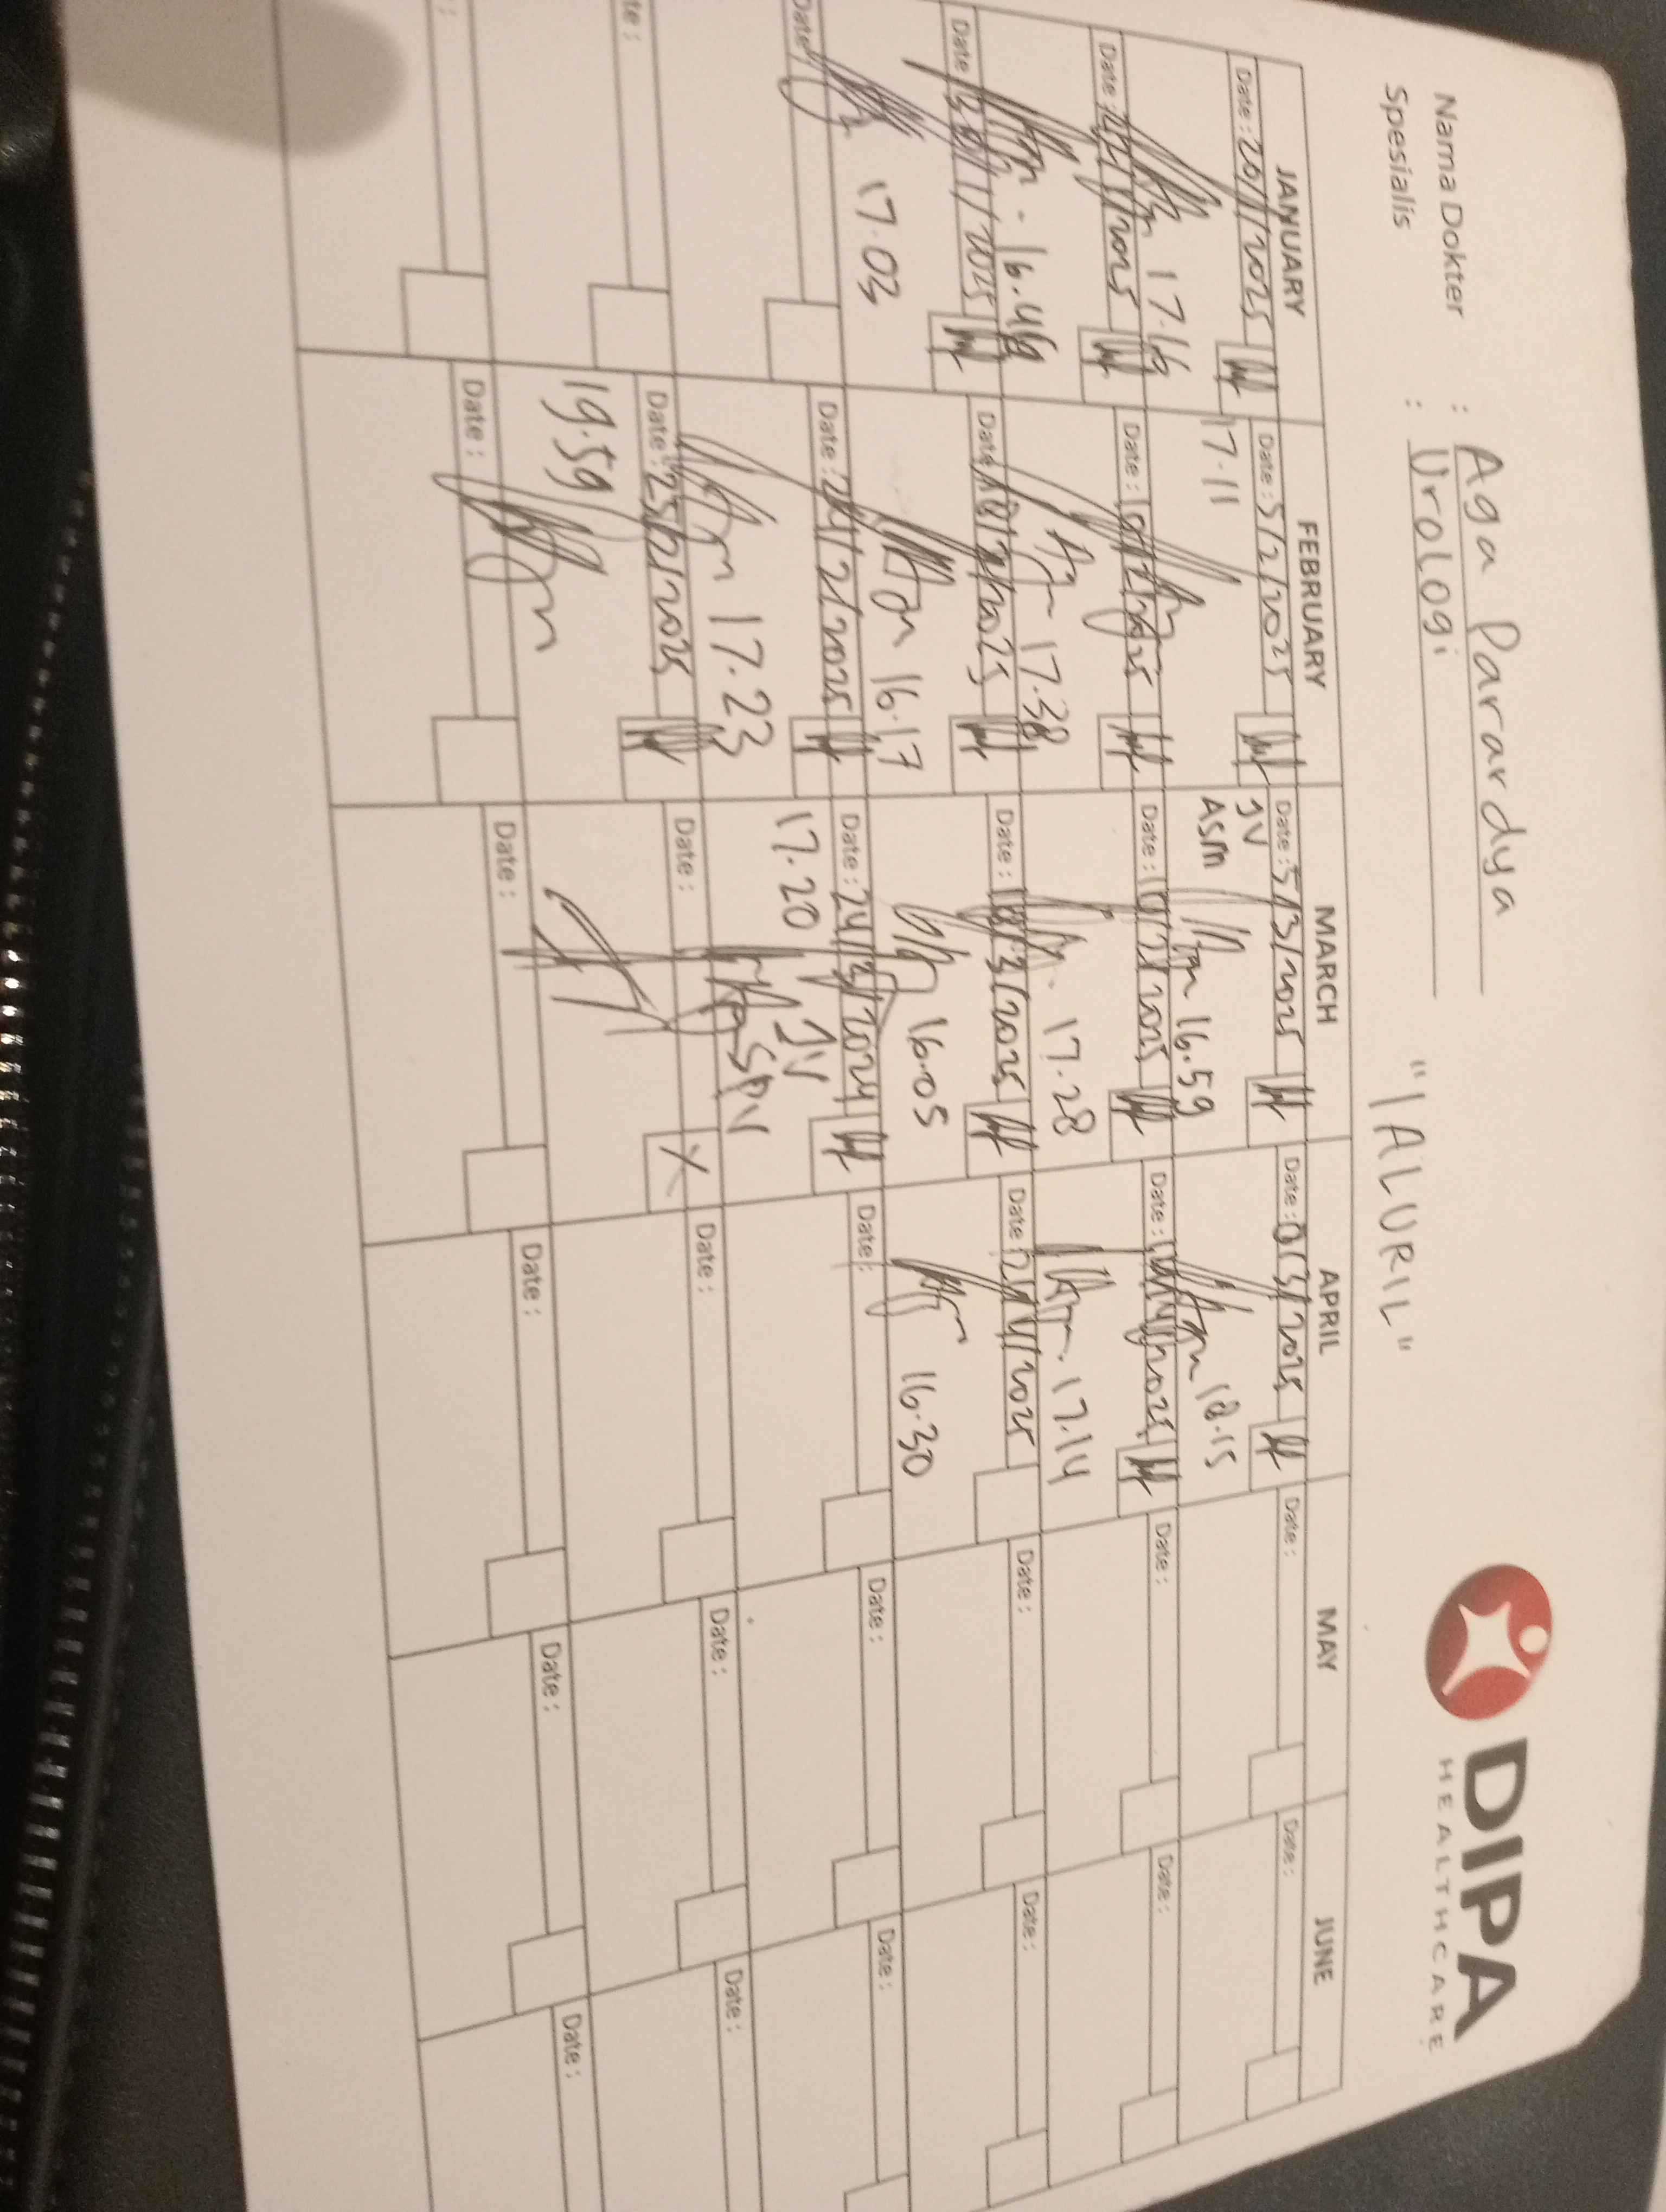 Nama Dokter : Aga Parardya
Spesialis : Urologi
"IALURIL"
DIPA
HEALTHCARE
JANUARY FEBRUARY MARCH APRIL MAY JUNE
Date: 20/1/2025 Date: 5/2/2025 Date: 5/3/2025 Date: /3/2025 Date: Date:
17.16 17.11 JV ASM 16.59 18.15
Date: /1/2025 Date: 10/2/2025 Date: 10/3/2025 Date: /4/2025 Date: Date:
16.49 17.38 17.28 17.14
Date: 30/1/2025 Date: 18/2/2025 Date: 18/3/2025 Date: 21/4/2025 Date: Date:
17.03 16.17 16.05 16.30
Date: Date: 24/2/2025 Date: 24/3/2024 Date: Date: Date:
17.23 17.20 JV SPV
te: Date: 25/2/2025 Date: X Date: Date: Date:
19.59
: Date: Date: Date: Date: Date: